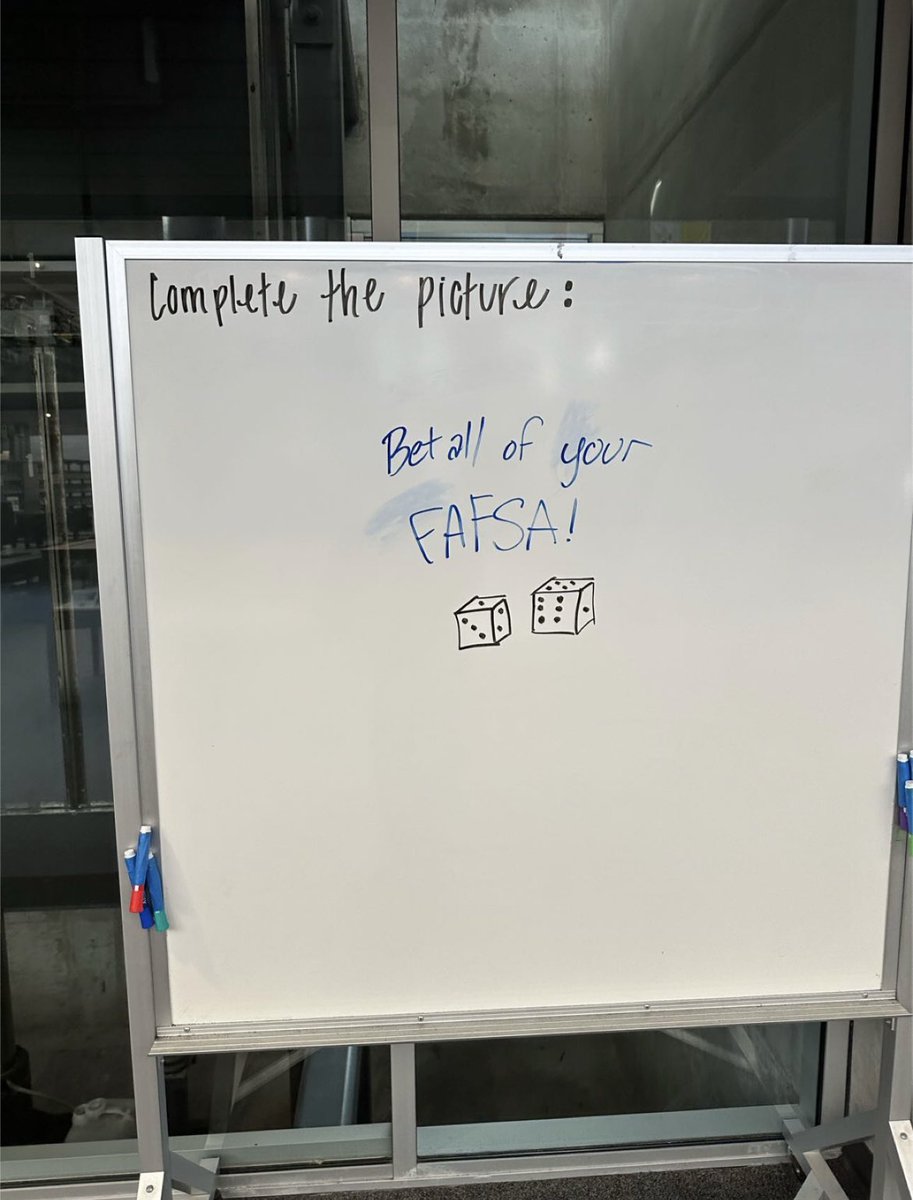 Complete the picture:
Bet all of your
FAFSA!